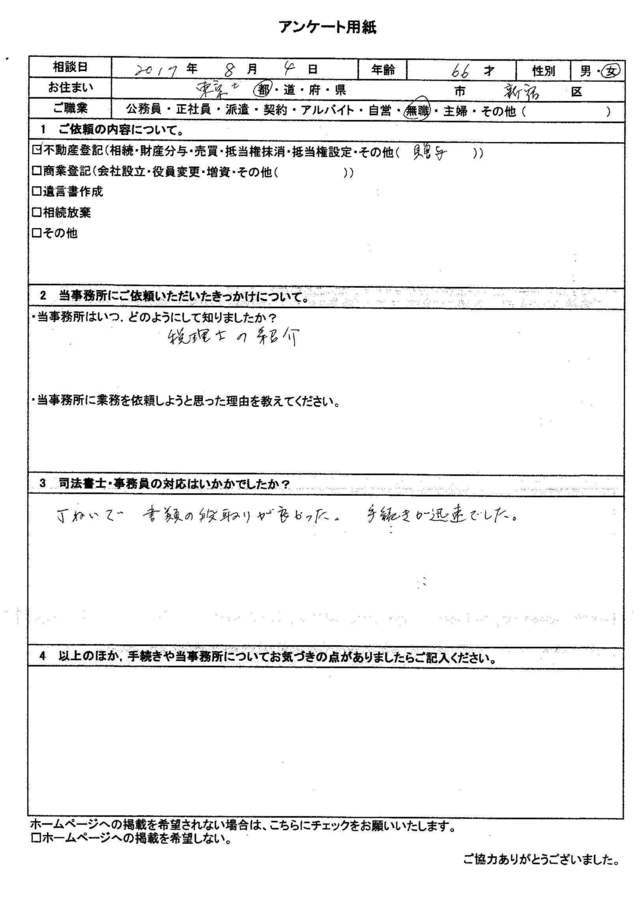 アンケート用紙
相談日 2017 年 8 月 4 日 年齢 66 才 性別 男・女
お住まい 東京 都・道・府・県 市 新宿 区
ご職業 公務員・正社員・派遣・契約・アルバイト・自営・無職・主婦・その他( )
1 ご依頼の内容について。
☑不動産登記(相続・財産分与・売買・抵当権抹消・抵当権設定・その他( 贈与 ))
□商業登記(会社設立・役員変更・増資・その他( ))
□遺言書作成
□相続放棄
□その他
2 当事務所にご依頼いただいたきっかけについて。
・当事務所はいつ，どのようにして知りましたか？
税理士の紹介
・当事務所に業務を依頼しようと思った理由を教えてください。
3 司法書士・事務員の対応はいかかでしたか？
丁ねいで 書類の段取りが良かった。 手続きが迅速でした。
4 以上のほか，手続きや当事務所についてお気づきの点がありましたらご記入ください。
ホームページへの掲載を希望されない場合は、こちらにチェックをお願いいたします。
□ホームページへの掲載を希望しない。
ご協力ありがとうございました。